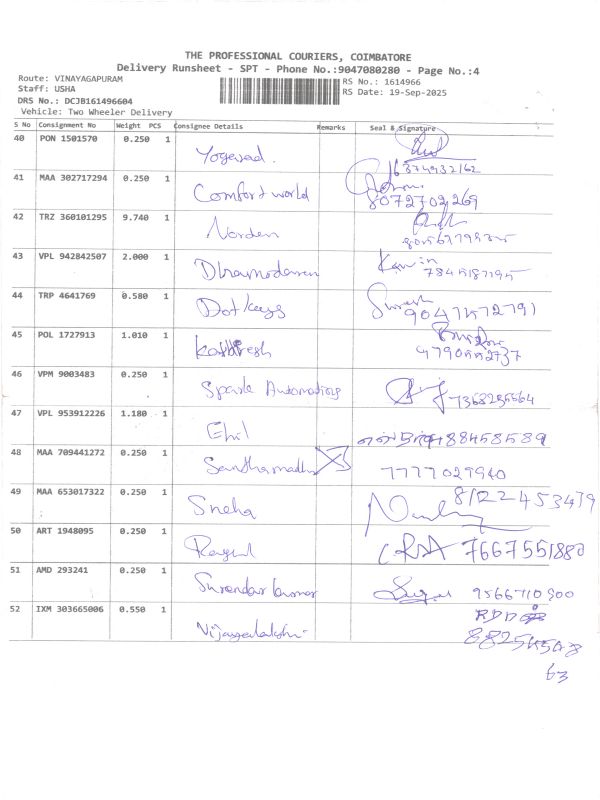 THE PROFESSIONAL COURIERS, COIMBATORE
Delivery Runsheet - SPT - Phone No.:9047080280 - Page No.:4
Route: VINAYAGAPURAM RS No.: 1614966
Staff: USHA RS Date: 19-Sep-2025
DRS No.: DCJB161496604
Vehicle: Two Wheeler Delivery
S No Consignment No Weight PCS Consignee Details Remarks Seal & Signature
40 PON 1501570 0.250 1
41 MAA 302717294 0.250 1 Comfort world 8072702269
42 TRZ 360101295 9.740 1 Norden
43 VPL 942842507 2.000 1 Dhamodaran
44 TRP 4641769 0.580 1 Dotkeys Suresh
45 POL 1727913 1.010 1
46 VPM 9003483 0.250 1 Spark Automations
47 VPL 953912226 1.180 1 Ehil
48 MAA 709441272 0.250 1 7777027940
49 MAA 653017322 0.250 1 Sneha 8122453479
50 ART 1948095 0.250 1 Ragul 7667551880
51 AMD 293241 0.250 1 9566710900
52 IXM 303665006 0.550 1 Vijayalakshmi
63